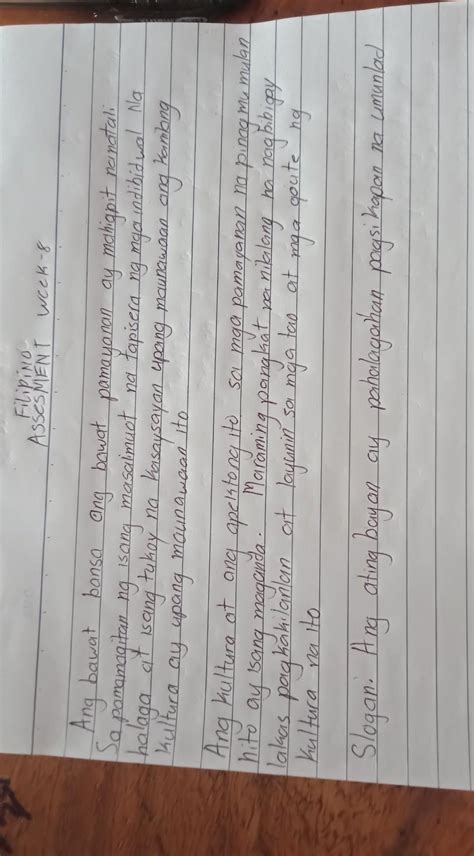 Filipino
ASSESMENT week-8
Ang bawat bansa ang bawat pamayanan ay mahigpit nanatali
Sa pamamagitan ng isang masalmuot na tapisera ng mga indibidwal Na
halaga at isang tukoy na kasaysayan upang maunawaan ang kanilang
kultura ay upang maunawaan ito
Ang kultura at ang apektong ito sa mga pamayanan na pinag mu mulan
nito ay isang maganda. Maraming pangkat na nikilang na nagbibigay
lakas pagkakilanlan at layunin sa mga tao at mga goute ng
kultura na ito
Slogan: Ang ating bayan ay pahalagahan pagsikapan na umunlad